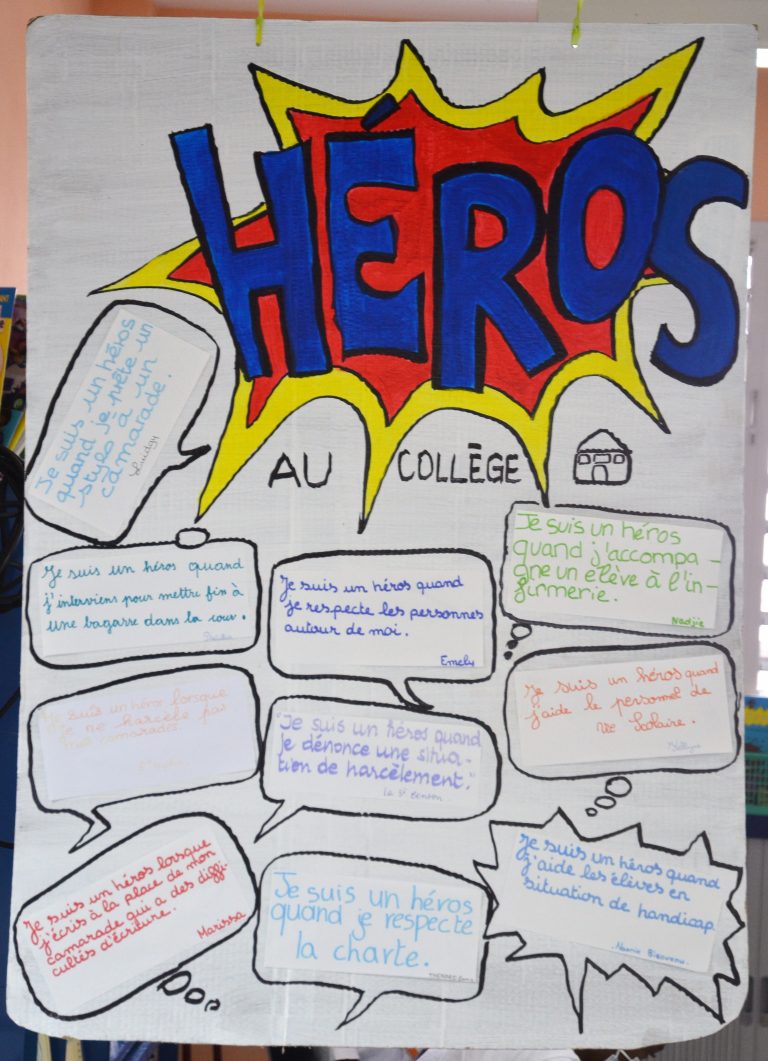 HÉROS
AU COLLÈGE
Je suis un héros
quand je prête un
stylo à un
camarade.
Je suis un héros quand
j'interviens pour mettre fin à
une bagarre dans la cour.
Je suis un héros quand
je respecte les personnes
autour de moi.
Emely
Je suis un héros
quand j'accompa-
gne un élève à l'in-
firmerie.
Nadjie
Je suis un héros lorsque
je ne harcèle pas
mes camarades.
"Je suis un héros quand
je dénonce une situa-
tion de harcèlement."
Je suis un héros quand
j'aide le personnel de
vie Scolaire.
Je suis un héros lorsque
j'écris à la place de mon
camarade qui a des diffi-
cultés d'écriture.
Marissa
Je suis un héros
quand je respecte
la charte.
Je suis un héros quand
j'aide les élèves en
situation de handicap